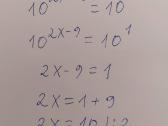 = 10
10^{2x-9} = 10^1
2x-9 = 1
2x = 1+9
2x = 10